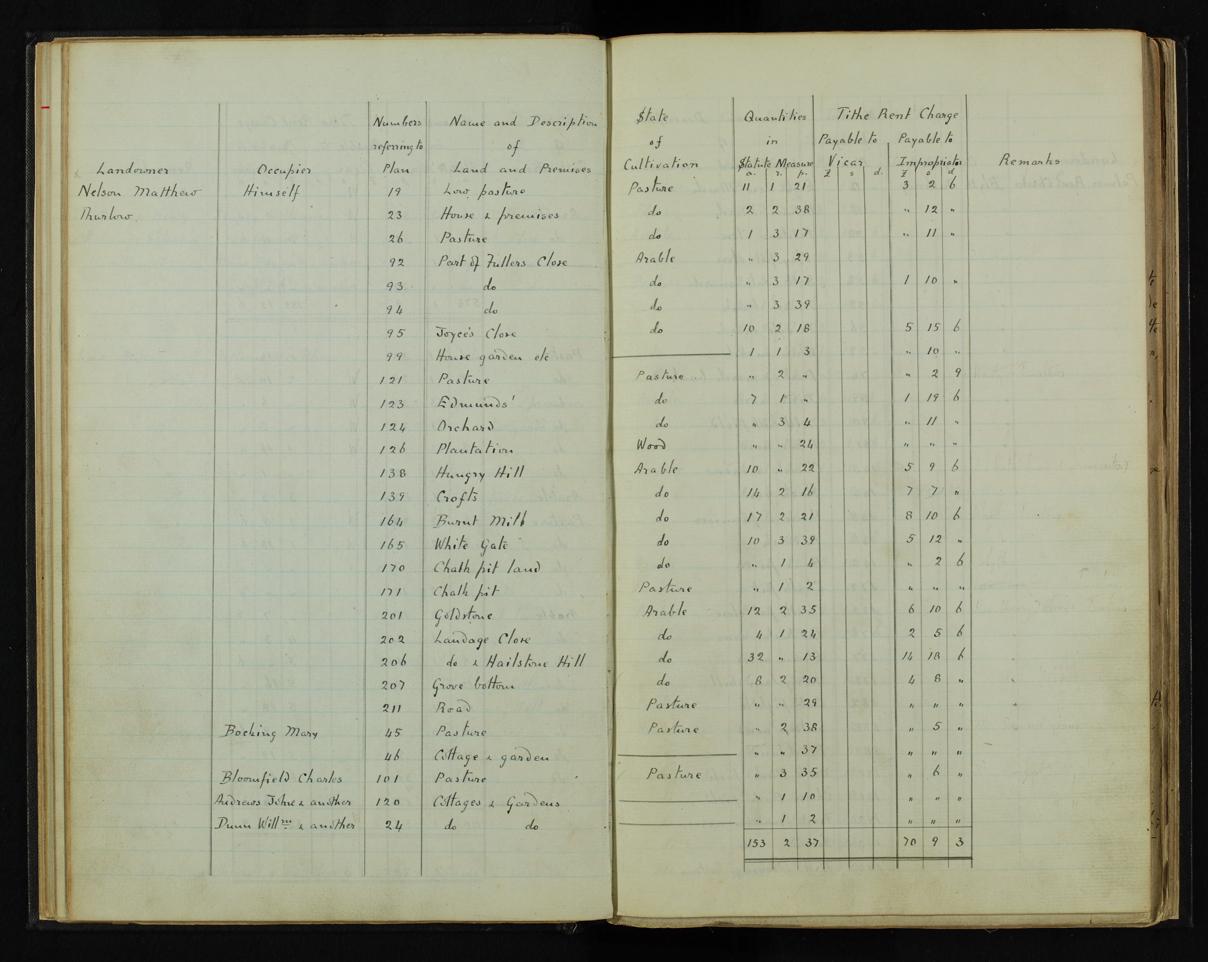 Numbers Name and Description State Quantities Tithe Rent Charge
referring to of of in Payable to Payable to
Landowner Occupier Plan Land and Premises Cultivation Statute Measure Vicar Impropriator Remarks
a. r. p. £ s d. £ s d
Nelson Matthew Himself 19 Low pasture Pasture 11 1 21 3 2 6
Thurlow. 23 House & premises do 2 2 38 " 12 "
26 Pasture do 1 3 17 " 11 "
92 Part of Fullers Close Arable " 3 29
93 do do " 3 17 1 10 "
94 do do " 3 39
95 Joyce's Close do 10 2 18 5 15 6
99 House garden etc 1 1 3 " 10 "
121 Pasture Pasture " 2 " " 2 9
123 Edmunds' do 7 1 " 1 19 6
124 Orchard do " 3 4 " 11 "
126 Plantation Wood " " 24 " " "
138 Hungry Hill Arable 10 " 22 5 9 6
139 Crofts do 14 2 16 7 7 "
164 Burnt Mill do 17 2 21 8 10 6
165 White Gate do 10 3 39 5 12 "
170 Chalk pit land do " 1 4 " 2 6
171 Chalk pit Pasture " 1 2 " " "
201 Goldstone Arable 12 2 35 6 10 6
202 Landage Close do 4 1 24 2 5 6
206 do & Hailstone Hill do 32 " 13 14 18 6
207 Grove bottom do 8 2 20 4 8 "
211 Road Pasture " " 29 " " "
Bocking Mary 45 Pasture Pasture " 2 38 " 5 "
46 Cottage & garden " " 37 " " "
Bloomfield Charles 101 Pasture Pasture " 3 35 " 6 "
Andrews John & another 120 Cottages & Gardens " 1 10 " " "
Dunn Willm & another 24 do do " 1 2 " " "
153 2 37 70 9 3